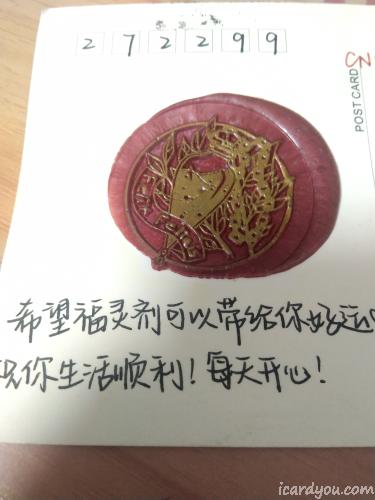 272299
POST CARD
Felix Felicis
希望福灵剂可以带给你好运
祝你生活顺利！每天开心！
icardyou.com